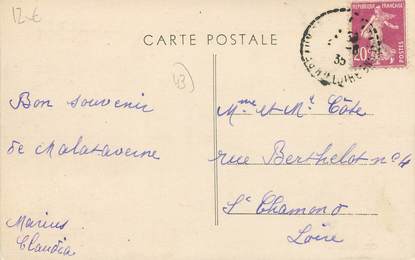 12€
CARTE POSTALE
RÉPUBLIQUE FRANÇAISE
20c
35
43
Bon souvenir
de Malataverne
Marius
Claudia
Mme et Mr Côte
rue Berthelot no 4
St Chamond
Loire